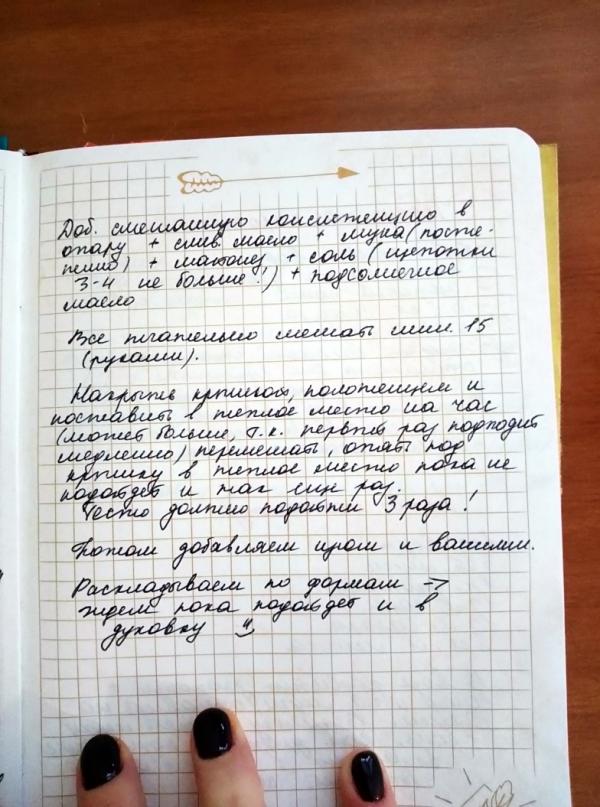 Доб. смешанную консистенцию в
опару + слив. масло + мука (посте-
пенно) + майонез + соль (щепотки
3-4 не больше!) + подсолнечное
масло
Все тщательно мешать мин. 15
(руками).
Накрыть крышкой, полотенцем и
поставить в теплое место на час
(может больше, т.к. первый раз подходит
медленно) перемешать, опять под
крышку в теплое место пока не
подойдет и так еще раз.
Тесто должно подойти 3 раза!
Потом добавляем изюм и ванилин.
Раскладываем по формам →
ждем пока подойдет и в
духовку